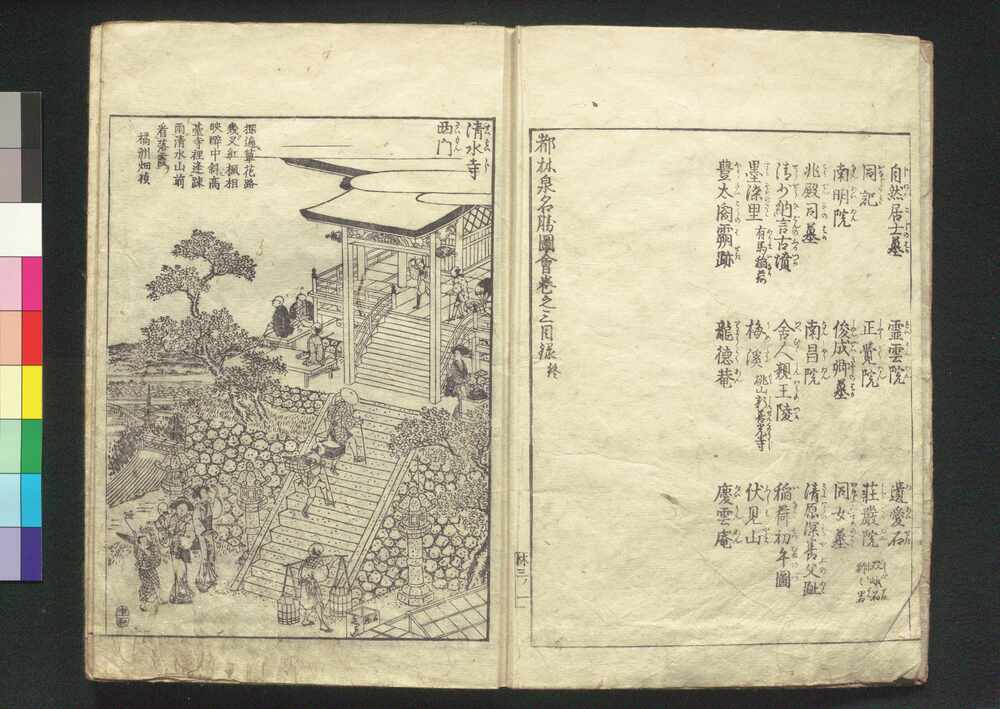 自然居士墓
霊雲院
遺愛石
同記
正覚院
荘厳院
南明院
俊成卿墓
同女墓
兆殿司墓
南昌院
清原深養父趾
清少納言古墳
舎人親王陵
稲荷初午圖
墨染里 有馬稲荷
梅溪
伏見山
豊太閤霸跡
龍徳菴
慶雲庵
都林泉名勝圖會巻之三目録終
林三ノ一
清水寺
西門
探遍草花路
幾叉紅楓相
映酔中斜高
臺寺裡逢疎
雨清水山前
看落霞
橘洲畑積